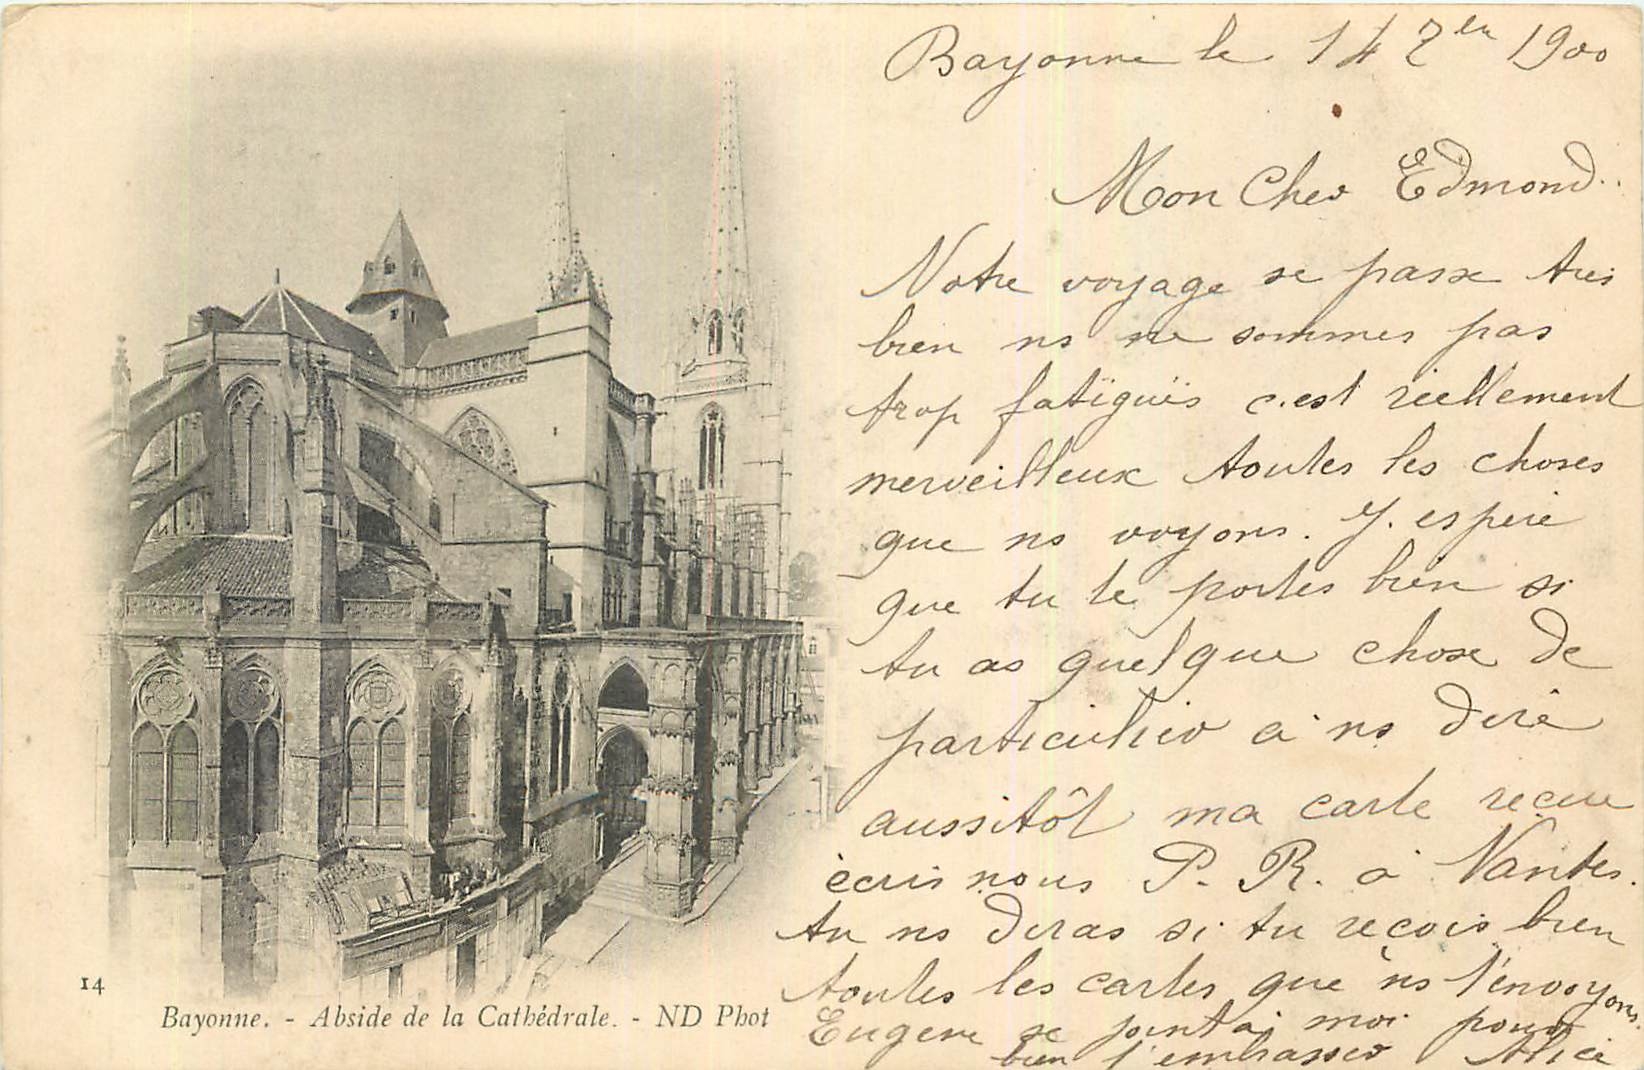 Bayonne le 14 7bre 1900
Mon Cher Edmond.
Notre voyage se passe tres
bien ns ne sommes pas
trop fatigués c'est réellement
merveilleux toutes les choses
que ns voyons. J'espère
que tu te portes bien si
tu as quelque chose de
particulier à ns dire
aussitôt ma carte reçue
écris nous P. R. à Nantes.
tu ns diras si tu reçois bien
toutes les cartes que ns t'envoyons.
Eugene se joint à moi pour
bien t'embrasser Alice
14
Bayonne. - Abside de la Cathédrale. - ND Phot